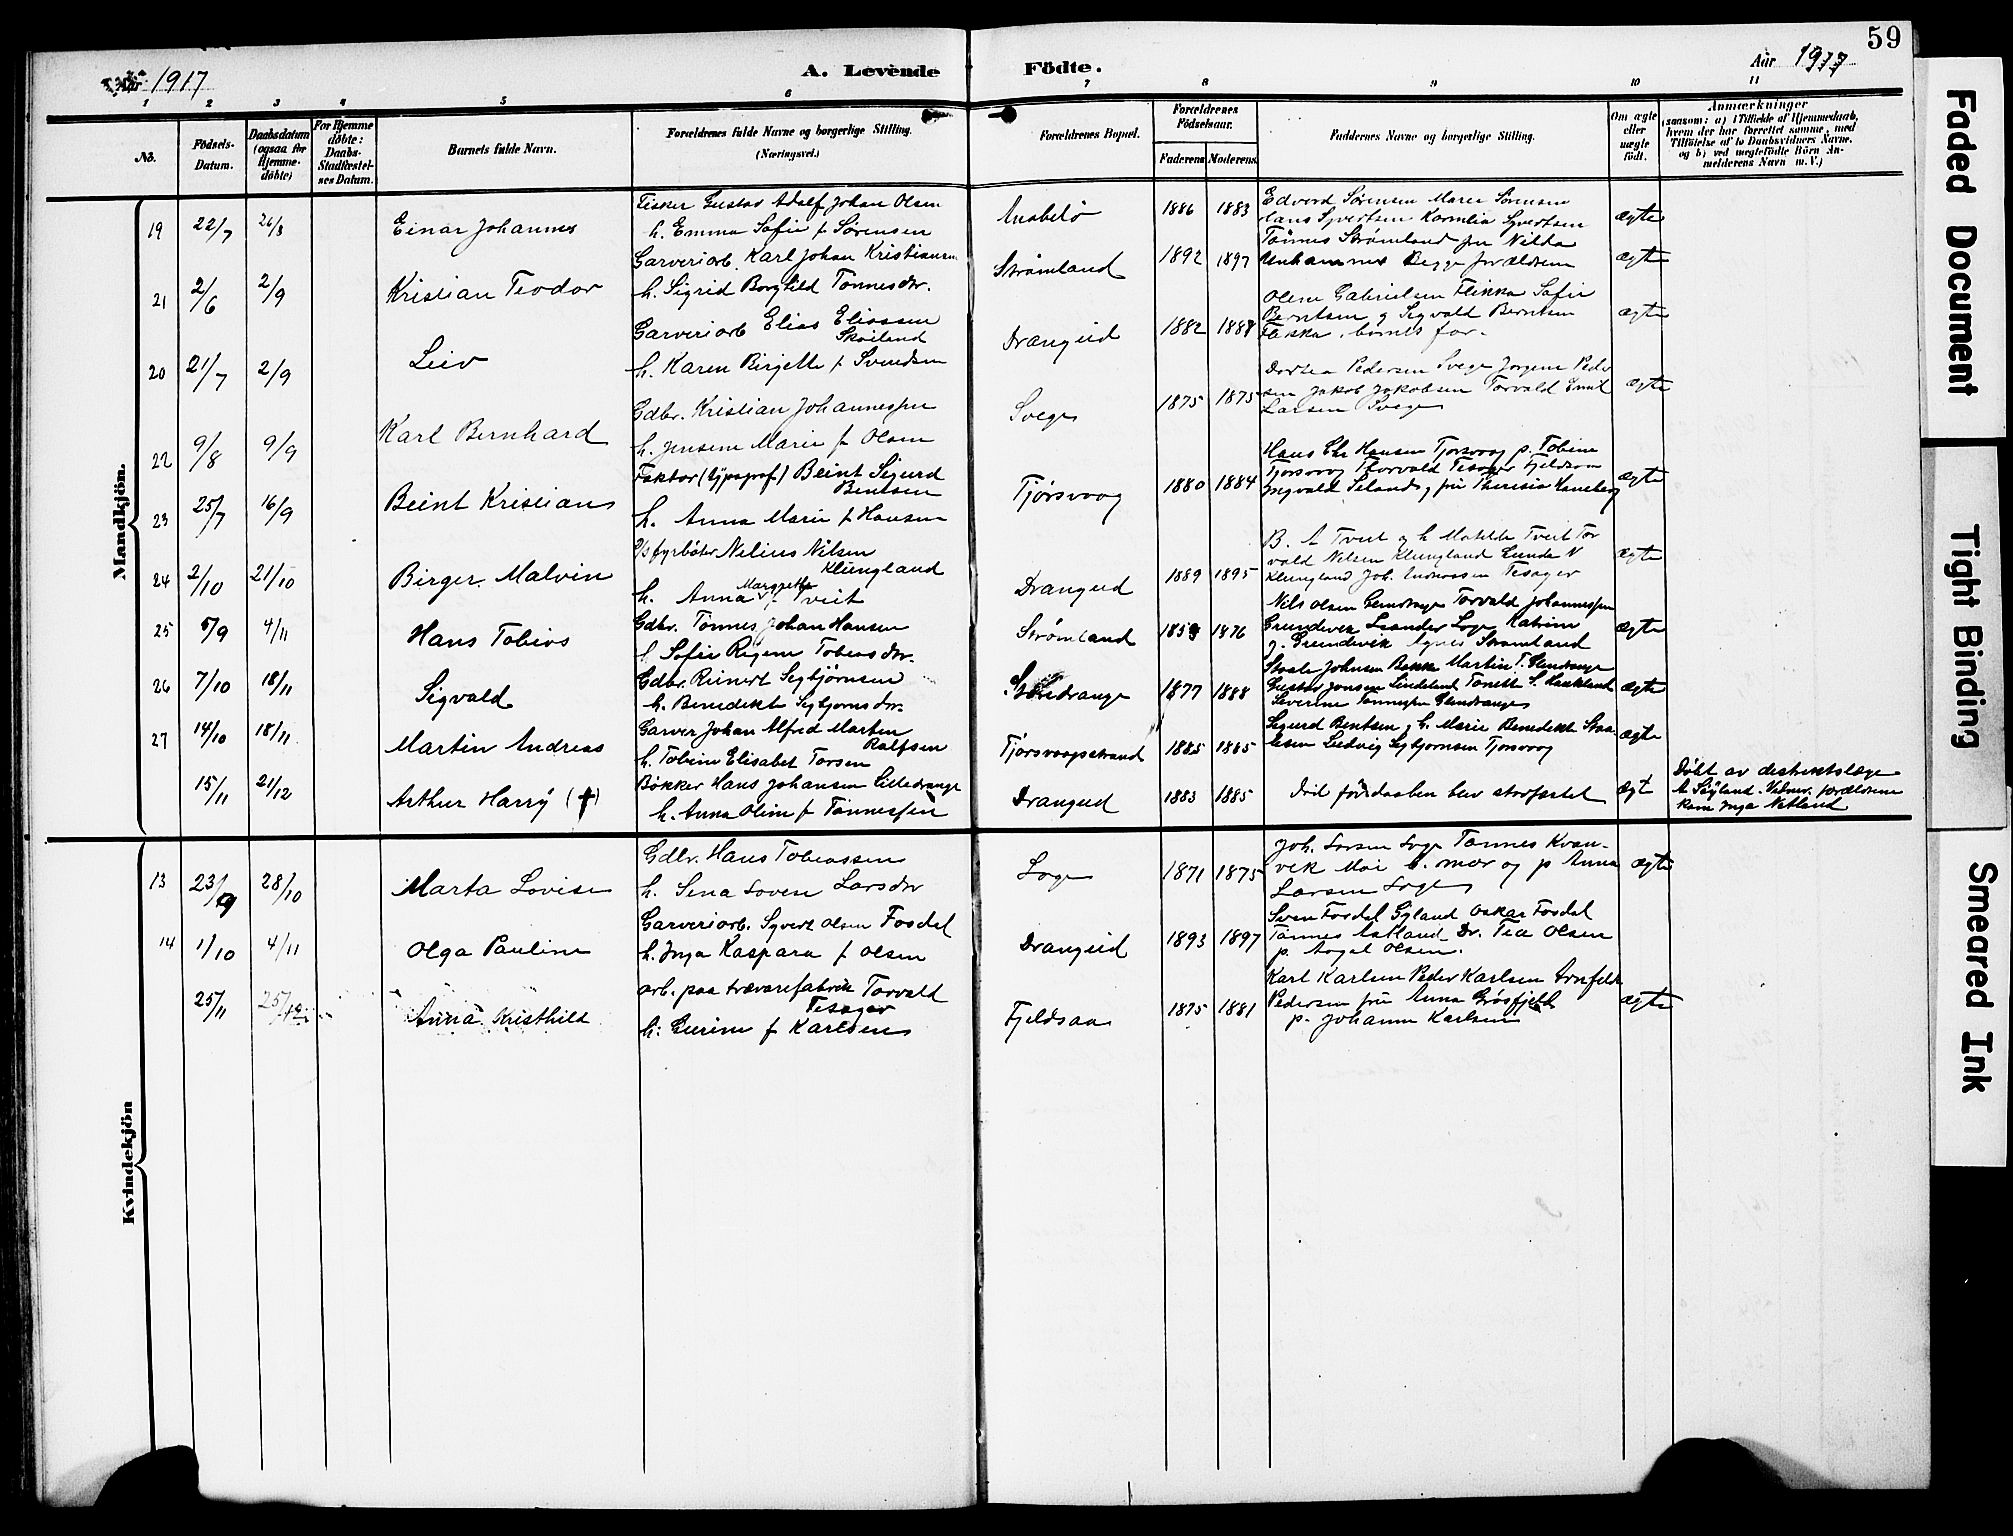 59
Aar 1917
A. Levende Födte.
Aar 1917
1 2 3 4 5 6 7 8 9 10 11
No.
Födsels-Datum.
Daabsdatum (ogsaa for Hjemme-döbte)
For Hjemme döbte: Daabs-Stadfæstel-ses Datum.
Barnets fulde Navn.
Forældrenes fulde Navne og borgerlige Stilling. (Næringsvei.)
Forældrenes Bopæl.
Forældrenes Födselsaar.
Faderens Moderens
Faddernes Navne og borgerlige Stilling.
Om ægte eller uægte födt.
Anmærkninger
(saasom: a) i Tilfælde af Hjemmedaab,
hvem der har forrettet samme, med
Tilföielse af to Daabsvidners Navne,
og b) ved uægtefödte Börn An-
melderens Navn m.V.)
Mandkjön.
19 22/7 26/8 Einar Johannes
Fisker Gustav Adolf Johan Olsen
h. Emma Sofie f Sørensen
Anabelø 1886 1883
Edvard Sørensen Marie Sørensen
Hans Syvertsen Kornelia Syvertsen
ægte
21 2/6 2/9 Kristian Teodor
Garveriarb. Karl Johan Kristiansen
h. Sigrid Borghild Tønnesdtr.
Strømland 1892 1897
Tönnes Strømland fru Nilda
Begge forældrene
ægte
20 21/7 2/9 Leiv
Garveriarb Elias Eliassen
Skoiland
h. Karen Birgitte f Svendsen
Drangeid 1882 1888
Olene Gabrielsen Flikka Sofie
Berntsen g Sigvald Berntsen
Flikka, barnets far.
ægte
22 9/8 9/9 Karl Bernhard
Gdbr. Kristian Johannessen
h. Jensine Marie f Olsen
Svege 1875 1875
Dortea Pedersen Svege Jorgine Peder
sen Jakob Jakobsen Torvald Emil
Larsen Svege
ægte
23 25/7 16/9 Beint Kristians
Faktor (typograf) Beint Sigurd
Bentsen
h. Anna Marie f Hansen
Tjørsvaag 1880 1884
Hans Chr Hansen Tjorsvaag p. Tobine
Tjorsvaag Thorvald Tesager Fjeldsaa
Ingvald Seland g fru Theresia Haneberg
ægte
24 2/10 21/10 Birger Malvin
fyrböter Nelius Nilsen
Klungland
h. Anna Margrethe f. Tveit
Drangeid 1889 1895
B. A Tveit g h Matilde Tveit Tor
vald Nilsen Klungland Gunda N
Klungland Joh. Andreassen Tesager
ægte
25 5/9 4/11 Hans Tobias
Gdbr. Tönnes Johan Hansen
h Sofie Regine Tobiasdtr.
Strømland 1859 1876
Nils Olsen Glendrange Torvald Johannessen
Grundevik Leander Loge Katrine
g. Grundevik Agnes Strømland
ægte
26 7/10 18/11 Sigvald
Gdbr. Reinert Sigbjørnsen
h. Benedikte Sigbjørnsdtr.
1877 1888
Staale Johnsen Bakke Martin T. Glendrange
Gustav Jonsen Lindeland Tonette S. Haukland
Severine Tønnesen Glendrange
ægte
27 14/10 18/11 Martin Andreas
Garver Johan Alfred Marten
Ralfsen
h. Tobine Elisabet Torsen
Tjørsvaagstrand 1885 1885
Sigurd Bentsen g h. Marie Benedikte Staa-
lesen Ludvig Sigbjornsen Tjorsvaag
ægte
15/11 21/12 Arthur Harry (†)
Bøkker Hans Johansen Lilledrange
h. Anna Oline f Tönnessen
Drangeid 1883 1885
Död för daaben blev stadfæstet
ægt
Döbt av distriktslæge
A Skjland. Vidner. forældrene
Inga Netland
Kvindekjön
13 23/9 28/10 Marta Lovise
Gdbr. Hans Tobiassen
h. Sina Loven Larsdtr
Loge 1871 1875
Joh. Larsen Loge Tønnes Kvan-
vik Moi b. mor og p Anna
Larsen Loge
ægte
14 1/10 4/11 Olga Pauline
Garveriarb. Syvert Olsen Fosdal
h. Inga Kaspara f Olsen
Drangeid 1893 1897
Sven Fosdal Gyland Oskar Fosdal
Tønnes Aslland Dr. Tea Olsen
p. Aagot Olsen.
25/11 25/12 Anna Kristhild
Arb. paa trævarefabrik Torvald
Tesager
h. Gurine f Karlsen
Fjeldsaa 1875 1881
Karl Karlsen Peder Karlsen Arnfeldt
Pedersen fru Anna Grösfjeld
p. Johanne Karlsen
ægte
Faded Document
Tight Binding
Smeared Ink